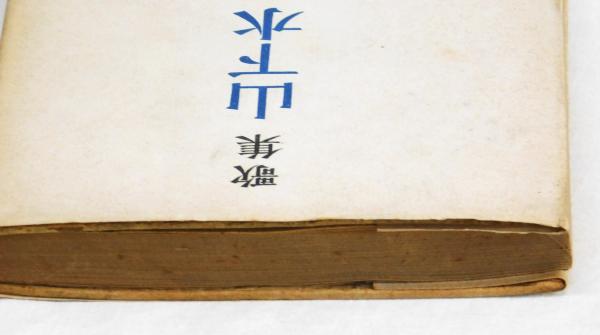 歌集 山下水